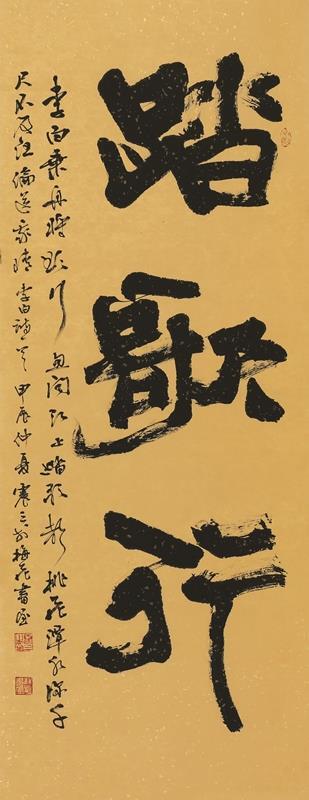 踏歌行
李白乘舟將欲行忽聞江上踏歌聲桃花潭水深千
尺不及汪倫送我情李白詩一首甲辰仲夏震之於梅花書屋